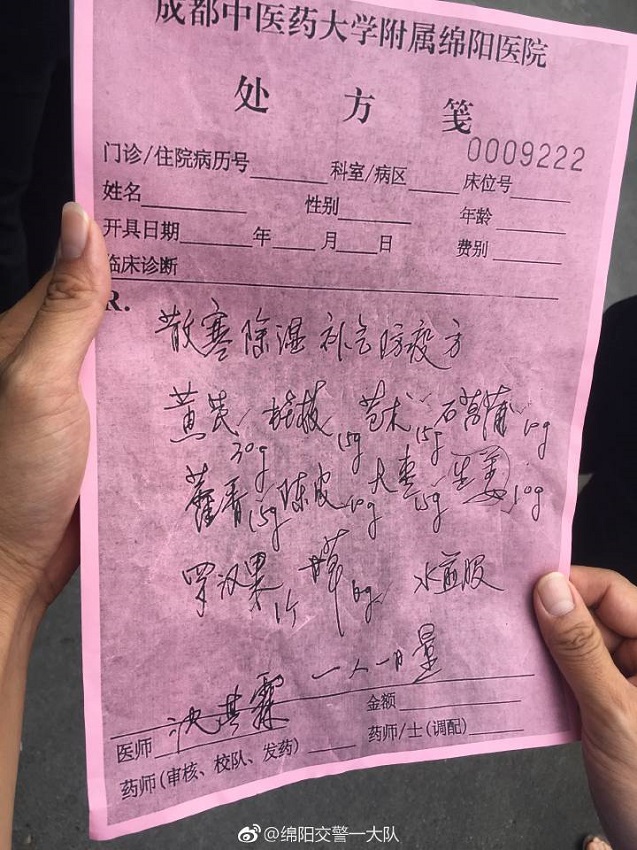 成都中医药大学附属绵阳医院
处方笺
0009222
门诊/住院病历号 科室/病区 床位号
姓名 性别 年龄
开具日期 年 月 日 费别
临床诊断
R.
散寒除湿 补气防疫方
黄芪30g 桂枝15g 苍术15g 石菖蒲10g
藿香15g 陈皮10g 大枣15g 生姜10g
罗汉果1个 甘草6g 水煎服
一人一日量
医师 沈其霖 金额
药师(审核、校队、发药) 药师/士(调配)
@绵阳交警一大队